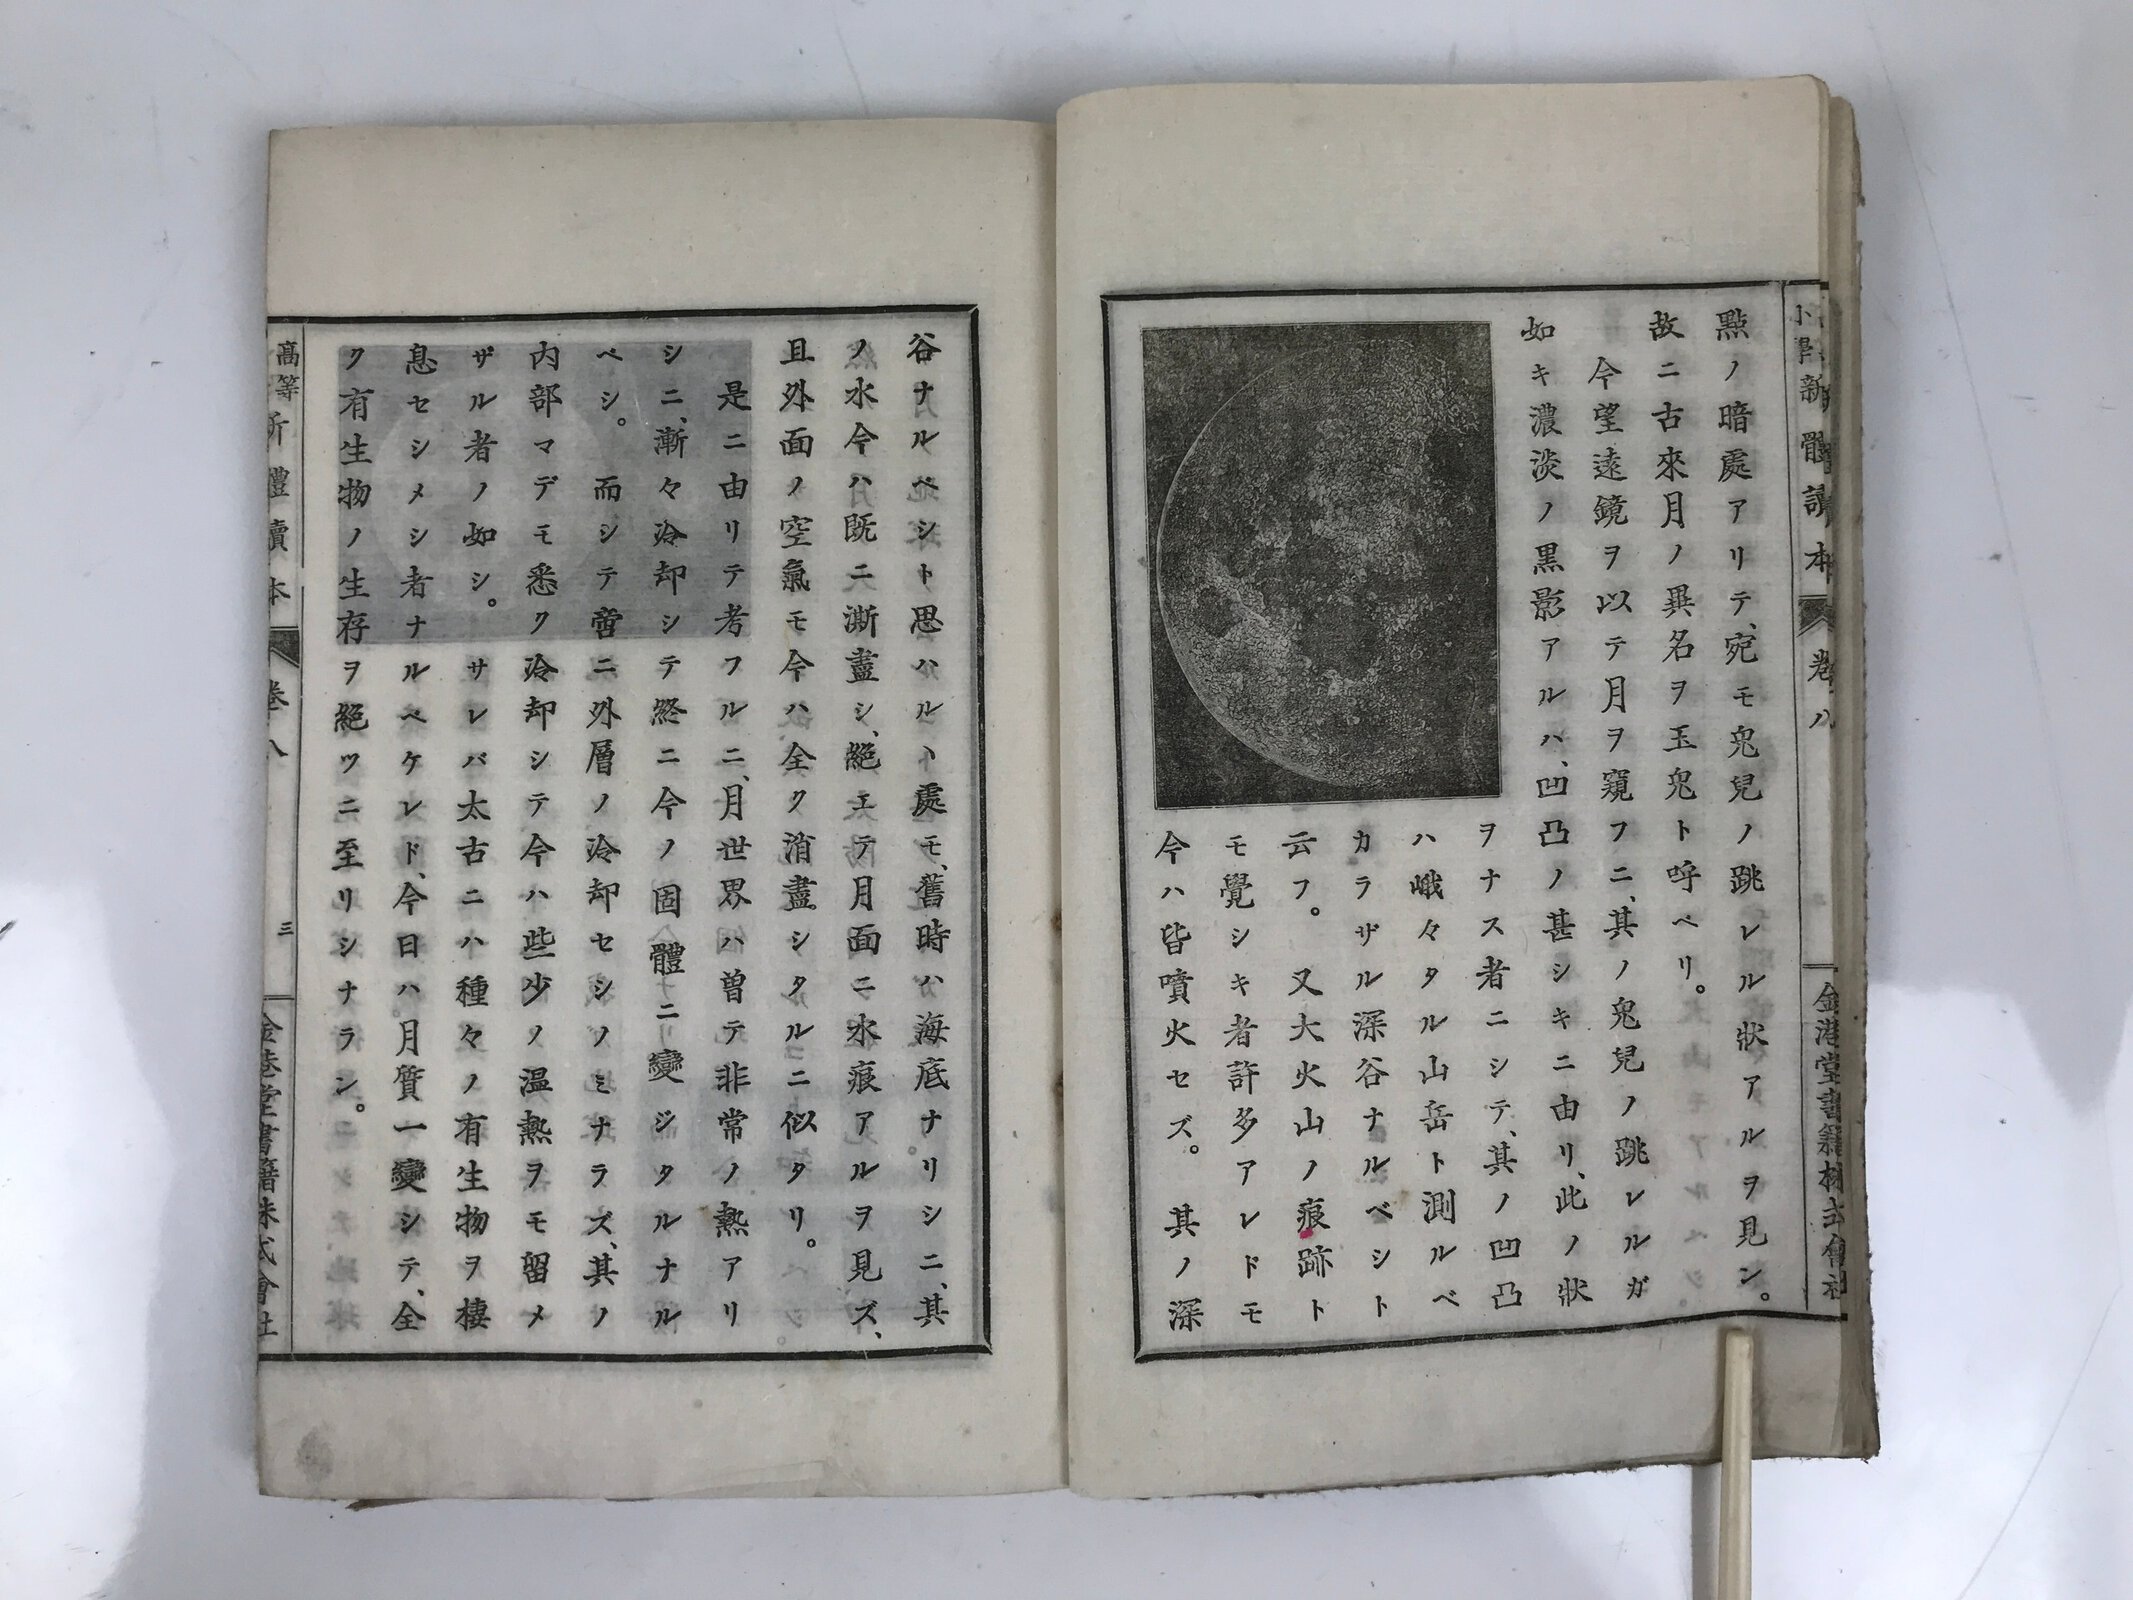 小學新體讀本
卷八
金港堂書籍株式會社
點ノ暗處アリテ、宛モ兎兒ノ跳レル狀アルヲ見ン。
故ニ古來月ノ異名ヲ玉兎ト呼ベリ。
今望遠鏡ヲ以テ月ヲ窺フニ、其ノ兎兒ノ跳レルガ
如キ濃淡ノ黒影アルハ、凹凸ノ甚シキニ由リ、此ノ狀
ヲナス者ニシテ、其ノ凹凸
ハ峨々タル山岳ト測ルベ
カラザル深谷ナルベシト
云フ。又大火山ノ痕跡ト
モ覺シキ者許多アレドモ
今ハ皆噴火セズ。其ノ深
谷ナルベシト思ハルヽ處モ、舊時ハ海底ナリシニ、其
ノ水今ハ既ニ澌盡シ、絕エテ月面ニ水痕アルヲ見ズ、
且外面ノ空氣モ今ハ全ク消盡シタルニ似タリ。
是ニ由リテ考フルニ、月世界ハ曽テ非常ノ熱アリ
シニ、漸々冷却シテ終ニ今ノ固體ニ變ジタルナル
ベシ。而シテ啻ニ外層ノ冷却セシノミナラズ、其ノ
内部マデモ悉ク冷却シテ今ハ些少ノ温熱ヲモ留メ
ザル者ノ如シ。サレバ太古ニハ種々ノ有生物ヲ棲
息セシメシ者ナルベケレド、今日ハ月質一變シテ、全
ク有生物ノ生存ヲ絕ツニ至リシナラン。
高等新體讀本
卷八
三
金港堂書籍株式會社